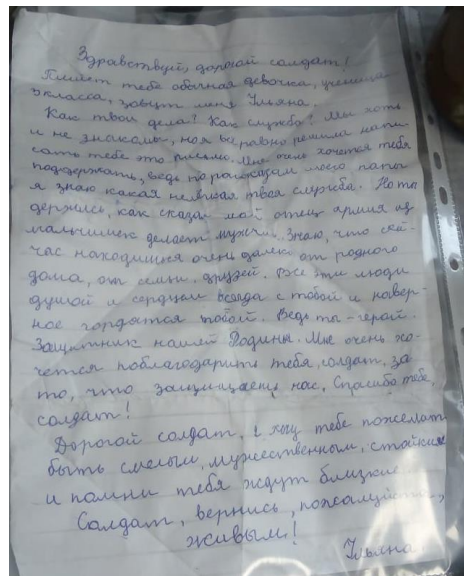 Здравствуй, дорогой солдат!
Пишет тебе обычная девочка, ученица
класса, зовут меня Ульяна.
Как твои дела? Как служба? Мы хоть
и не знакомы, но я всё равно решила напи-
сать тебе это письмо. Мне очень хочется тебя
поддержать, ведь по рассказам моего папы
я знаю какая нелёгкая твоя служба. Но ты
держись, как сказал мой отец армия из
мальчишек делает мужчин. Знаю, что сей-
час находишься очень далеко от родного
дома, от семьи, друзей. Все эти люди
душой и сердцем всегда с тобой и навер-
ное гордятся тобой. Ведь ты - герой.
Защитник нашей Родины. Мне очень хо-
чется поблагодарить тебя, солдат, за
то, что защищаешь нас, Спасибо тебе,
солдат!
Дорогой солдат, я хочу тебе пожелать
быть смелым, мужественным, стойким
и помни тебя ждут близкие
Солдат, вернись, пожалуйста,
живым!
Ульяна.